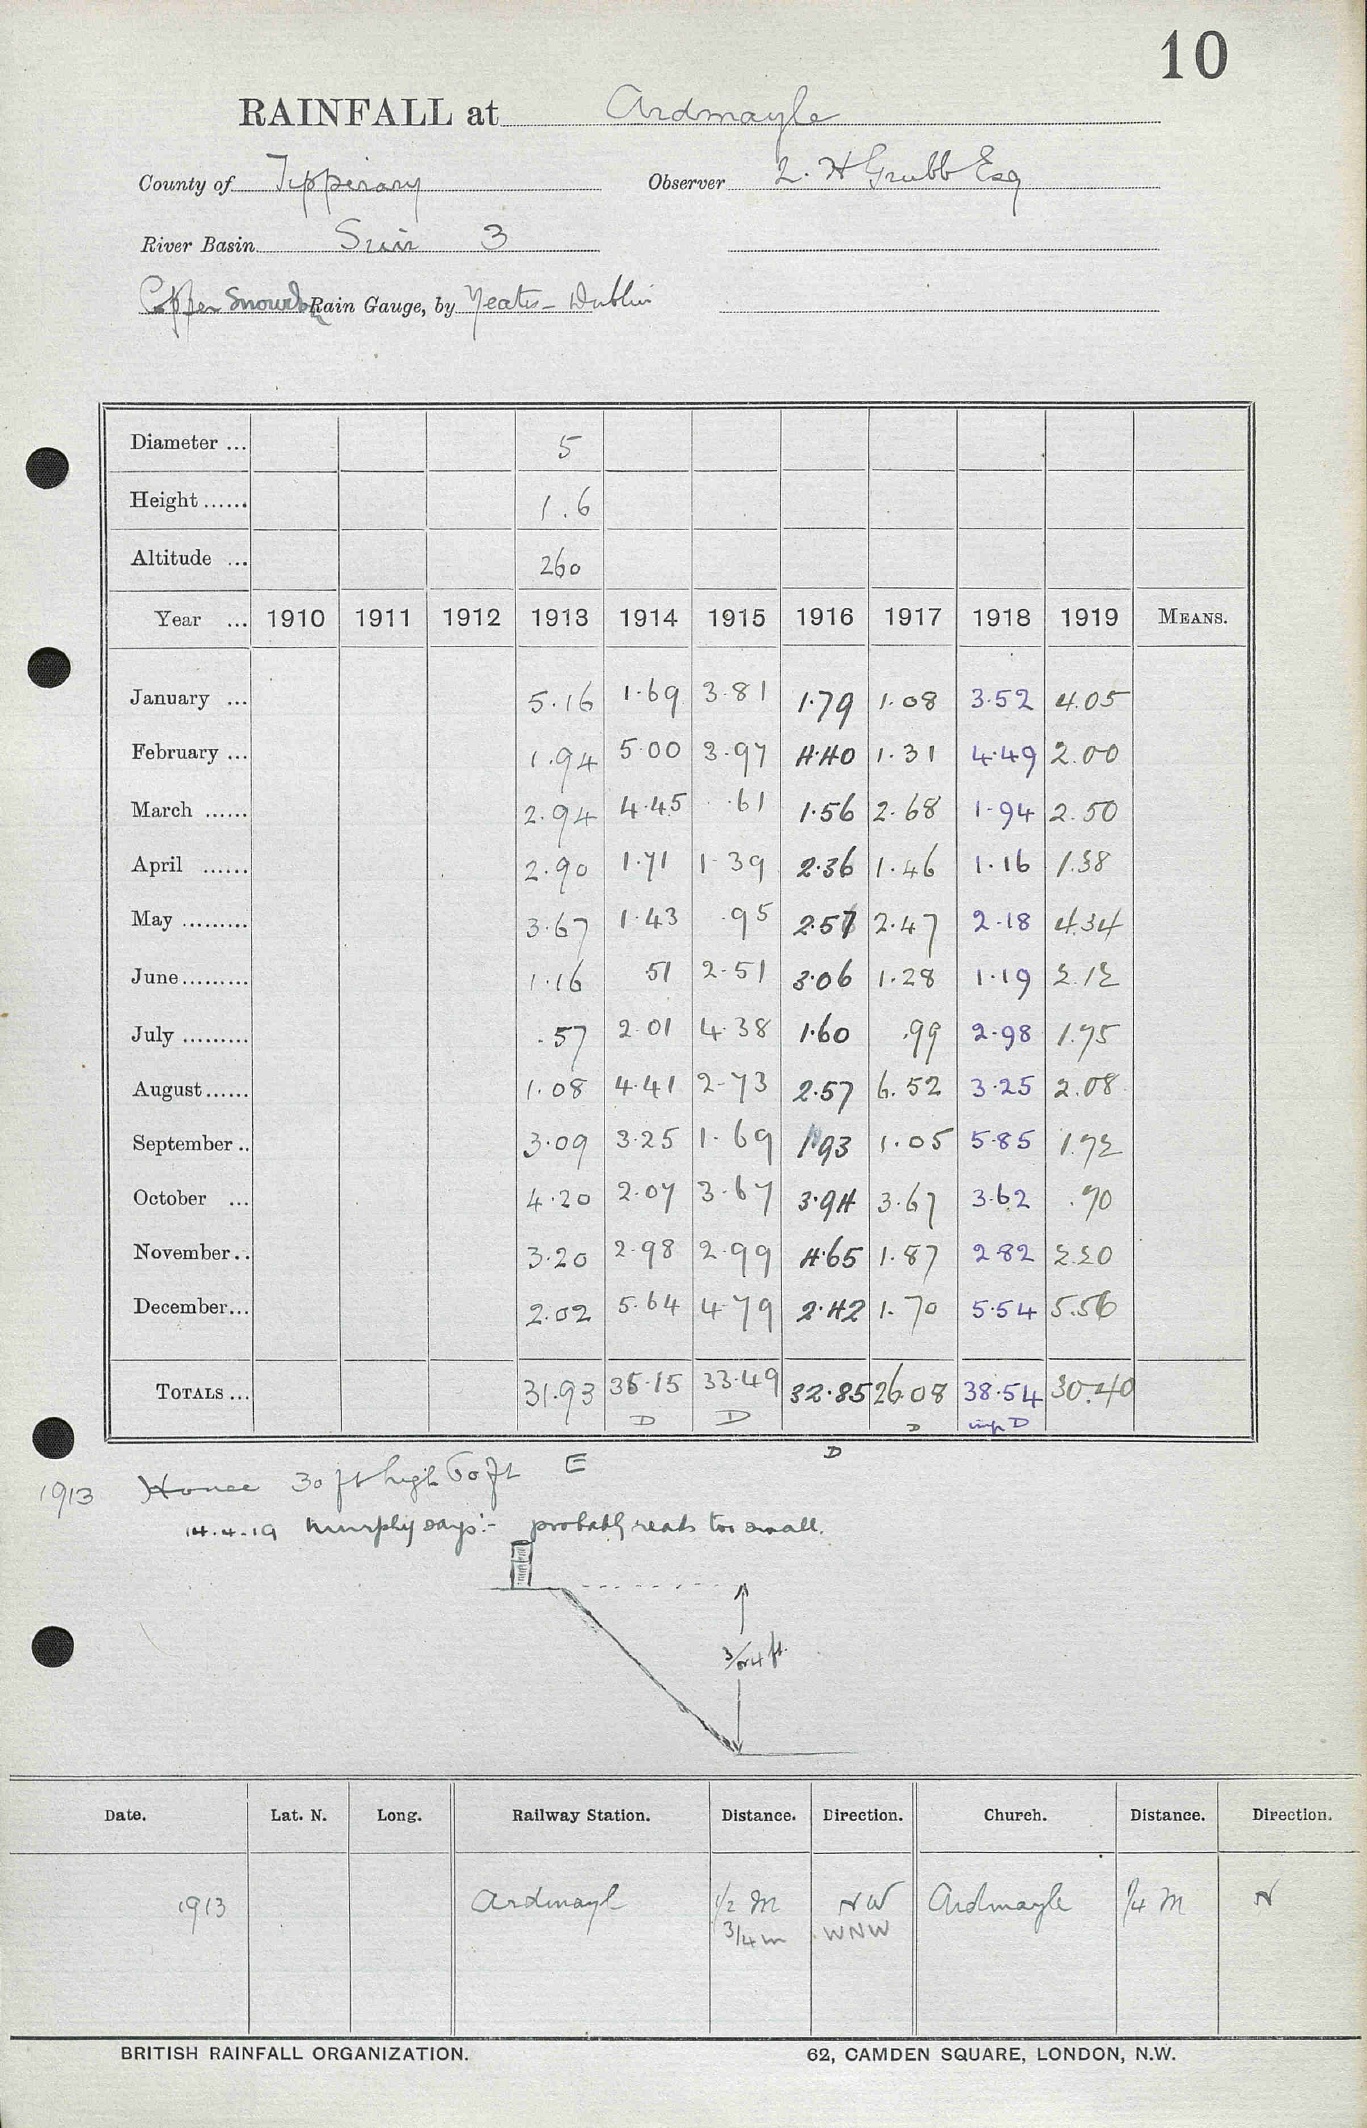 10
RAINFALL at Ardmayle
County of Tipperary Observer L. H Grubb Esq
River Basin Suir 3
Copper Snowdon Rain Gauge, by Yeates - Dublin
Diameter ... 5
Height ...... 1.6
Altitude ... 260
Year ... 1910 1911 1912 1913 1914 1915 1916 1917 1918 1919 MEANS.
January ... 5.16 1.69 3.81 1.79 1.08 3.52 4.05
February ... 1.94 5.00 3.97 4.40 1.31 4.49 2.00
March ...... 2.94 4.45 .61 1.56 2.68 1.94 2.50
April ...... 2.90 1.71 1.39 2.36 1.46 1.16 1.38
May ......... 3.67 1.43 .95 2.57 2.47 2.18 4.34
June ......... 1.16 51 2.51 3.06 1.28 1.19 2.12
July ......... .57 2.01 4.38 1.60 .99 2.98 1.75
August ...... 1.08 4.41 2.73 2.57 6.52 3.25 2.08
September .. 3.09 3.25 1.69 1.93 1.05 5.85 1.72
October ... 4.20 2.07 3.67 3.94 3.67 3.62 .90
November .. 3.20 2.98 2.99 4.65 1.87 2.82 2.20
December ... 2.02 5.64 4.79 2.42 1.70 5.54 5.56
TOTALS ... 31.93 35.15 33.49 32.85 26.08 38.54 30.40
D D D D imp D
1913 House 30 ft high 60 ft E
14.4.19 Murphy says:- probably reads too small.
3 or 4 ft.
Date. Lat. N. Long. Railway Station. Distance. Direction. Church. Distance. Direction.
1913 Ardmayle 1/2 M NW Ardmayle 1/4 M N
3/4 m WNW
BRITISH RAINFALL ORGANIZATION. 62, CAMDEN SQUARE, LONDON, N.W.